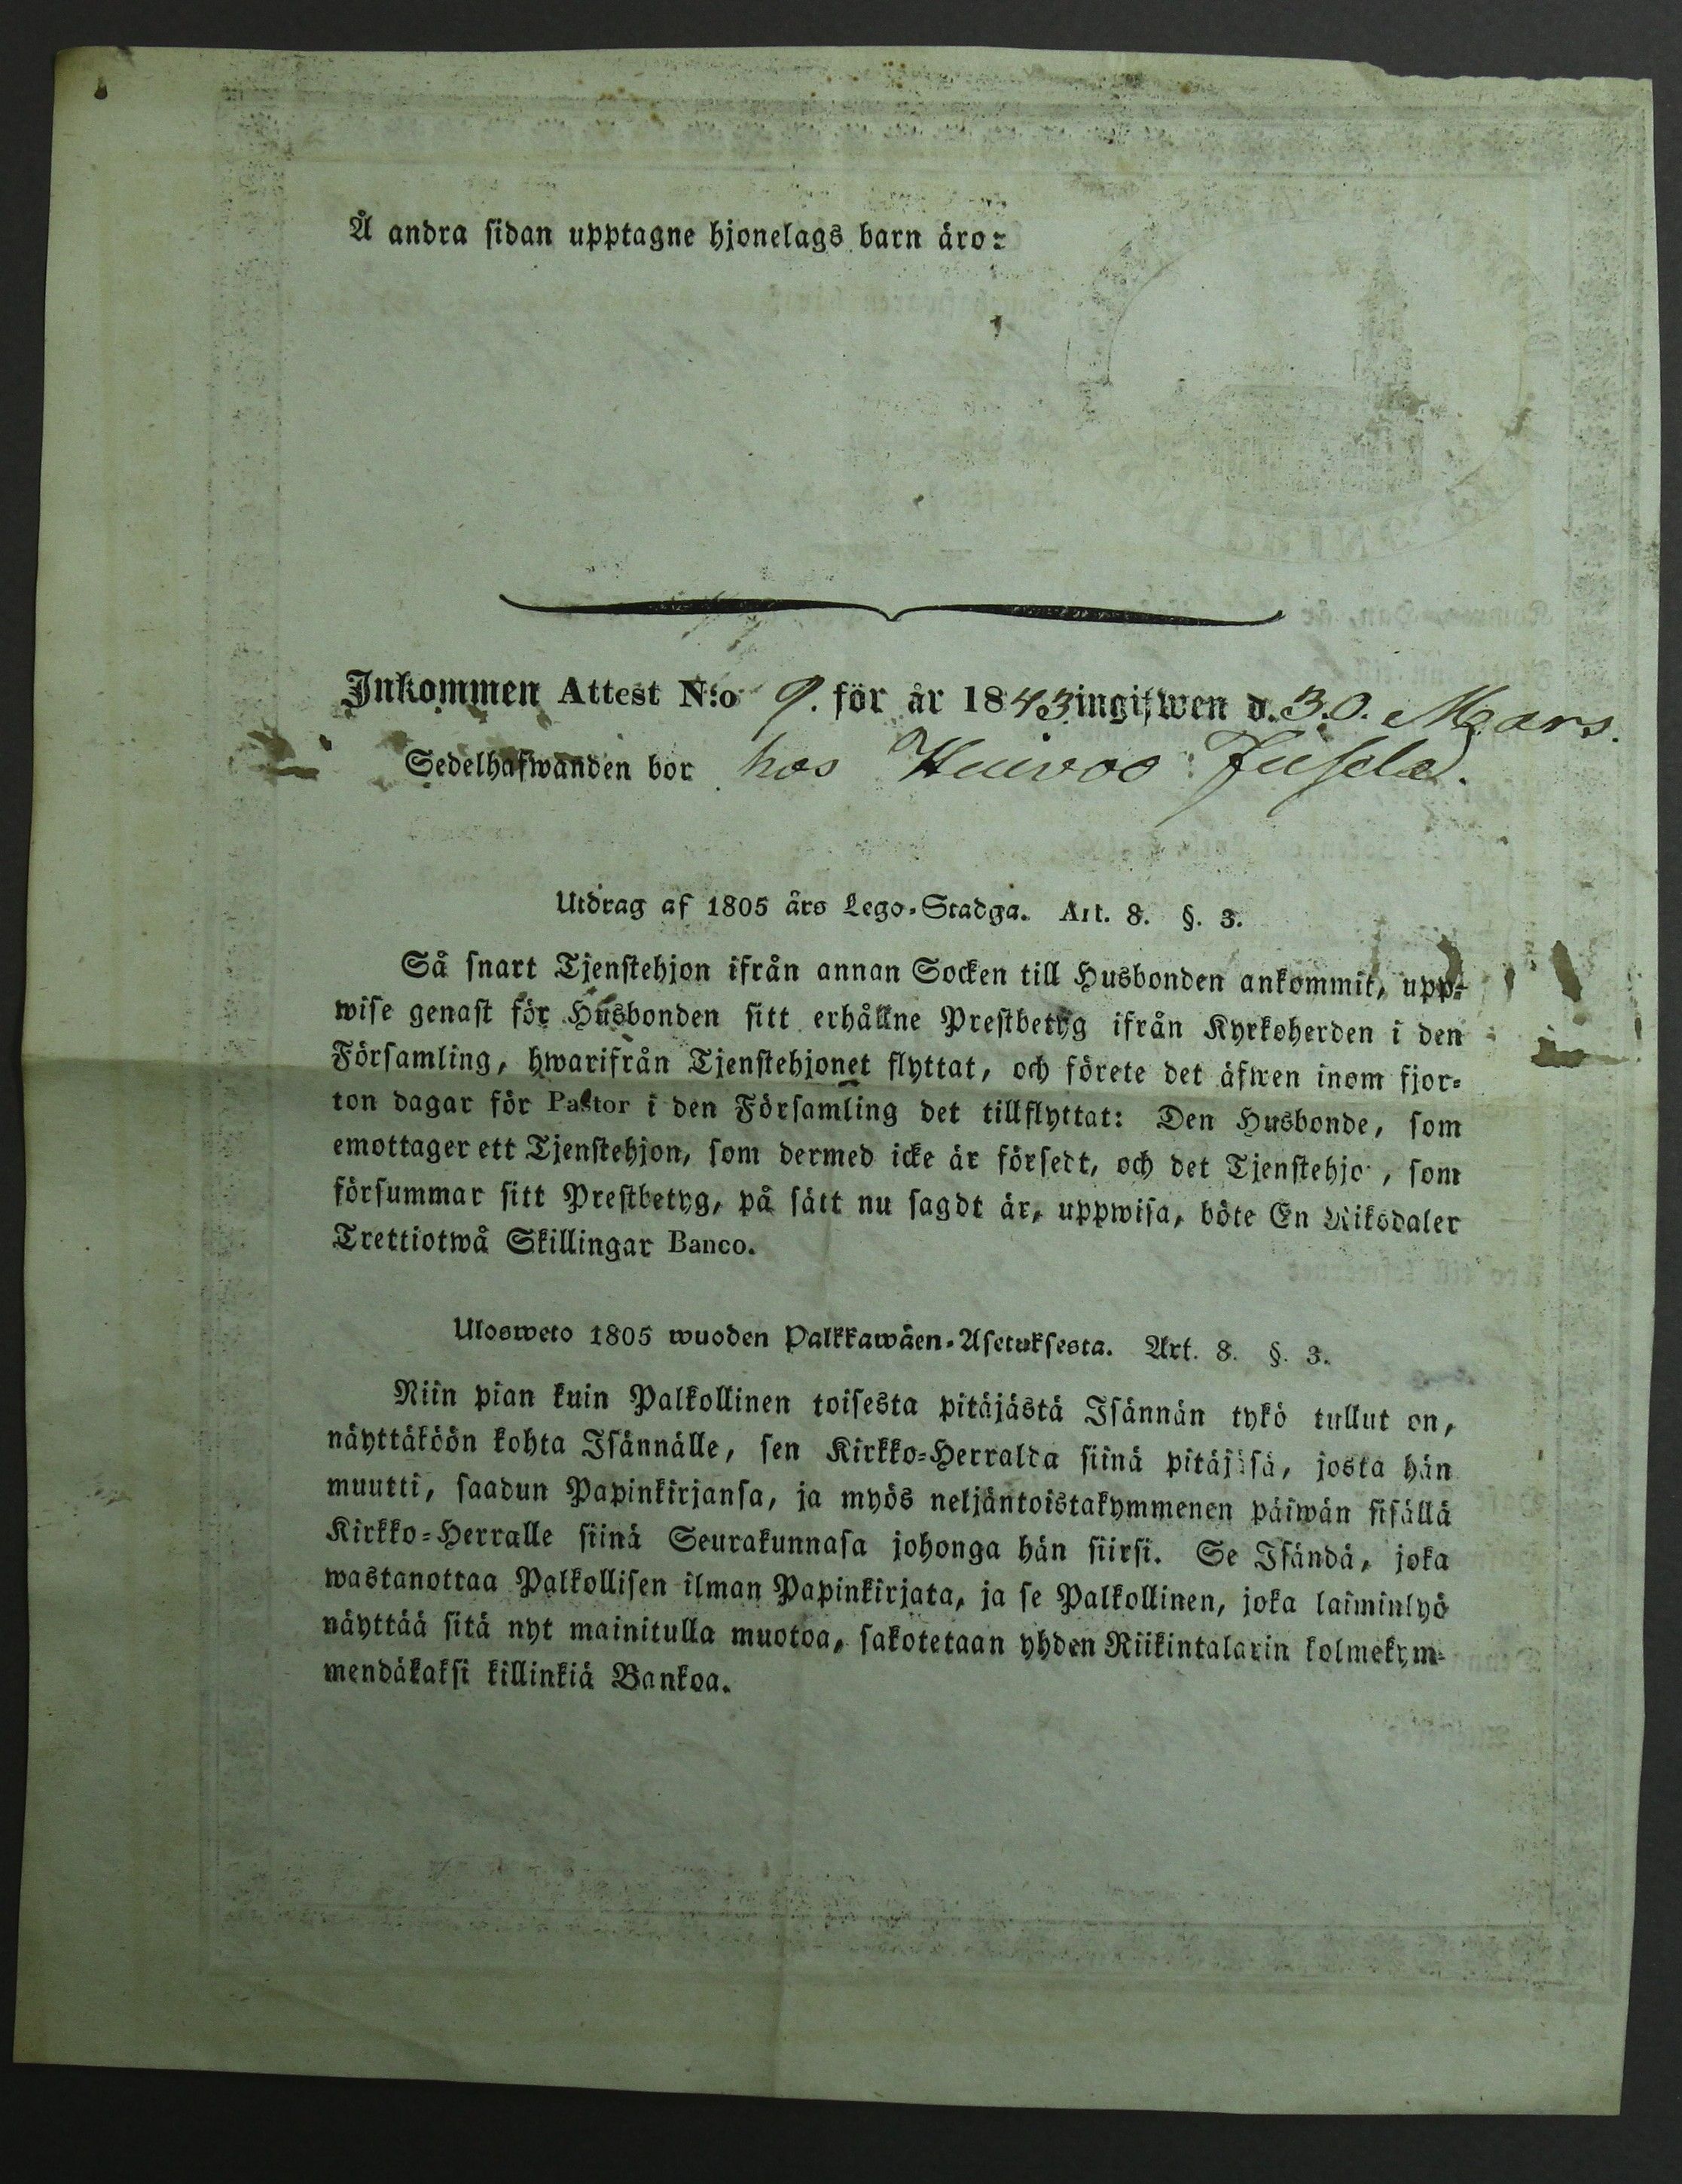 Å andra sidan upptagne hjonelags barn äro:
Inkommen Attest N:o 9. för år 1843 ingifwen d. 30. Mars.
Sedelhafwanden bor hos
Utdrag af 1805 års Lego-Stadga. Art. 8. §. 3.
Så snart Tjenstehjon ifrån annan Socken till Husbonden ankommit, upp-
wise genast för Husbonden sitt erhållne Prestbetyg ifrån Kyrkoherden i den
Församling, hwarifrån Tjenstehjonet flyttat, och förete det äfwen inom fjor-
ton dagar för Pastor i den Församling det tillflyttat: Den Husbonde, som
emottager ett Tjenstehjon, som dermed icke är försedt, och det Tjenstehjo , som
försummar sitt Prestbetyg, på sätt nu sagdt är, uppwisa, böte En Riksdaler
Trettiotwå Skillingar Banco.
Ulosweto 1805 wuoden Palkkawäen-Asetuksesta. Art. 8. §. 3.
Niin pian kuin Palkollinen toisesta pitäjästä Isännän tykö tullut on,
näyttäköön kohta Isännälle, sen Kirkko-Herralda siinä pitäjäsä, josta hän
muutti, saadun Papinkirjansa, ja myös neljäntoistakymmenen päiwän sisällä
Kirkko-Herralle siinä Seurakunnasa johonga hän siirsi. Se Isändä, joka
wastanottaa Palkollisen ilman Papinkirjata, ja se Palkollinen, joka laiminlyö
näyttää sitä nyt mainitulla muotoa, sakotetaan yhden Riikintalarin kolmekym-
mendäkaksi killinkiä Bankoa.